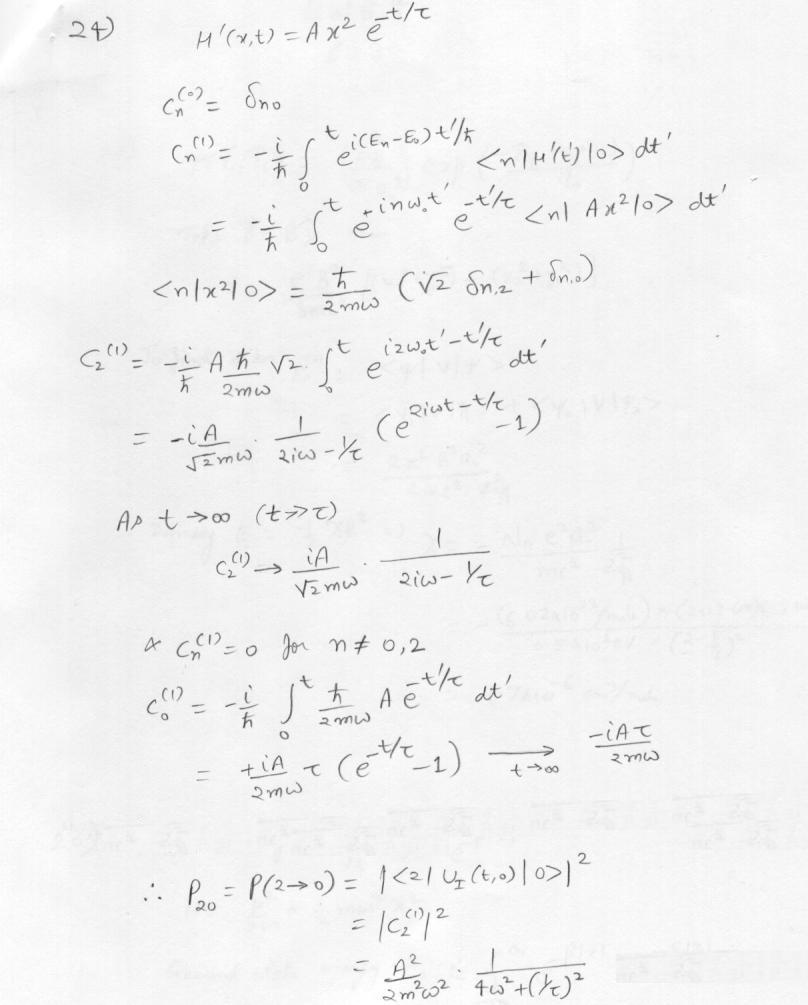 24) H'(x,t) = A x² e^{-t/τ}
C_n^{(0)} = δ_{n0}
C_n^{(1)} = -i/ħ ∫_0^t e^{i(E_n-E_0)t'/ħ} <n|H'(t')|0> dt'
= -i/ħ ∫_0^t e^{+inω_0t'} e^{-t'/τ} <n| Ax²|0> dt'
<n|x²|0> = ħ/2mω (√2 δ_{n,2} + δ_{n,0})
C_2^{(1)} = -i/ħ Aħ/2mω √2 · ∫_0^t e^{i2ω_0t'-t'/τ} dt'
= -iA/√2mω · 1/(2iω-1/τ) (e^{2iωt-t/τ} -1)
As t→∞ (t>>τ)
C_2^{(1)} → iA/√2mω · 1/(2iω-1/τ)
& C_n^{(1)} = 0 for n≠0,2
C_0^{(1)} = -i/ħ ∫_0^t ħ/2mω A e^{-t'/τ} dt'
= +iA/2mω τ (e^{-t/τ} -1) → t→∞ -iAτ/2mω
∴ P_{20} = P(2→0) = |<2| U_I(t,0)|0>|²
= |C_2^{(1)}|²
= A²/2m²ω² · 1/(4ω²+(1/τ)²)